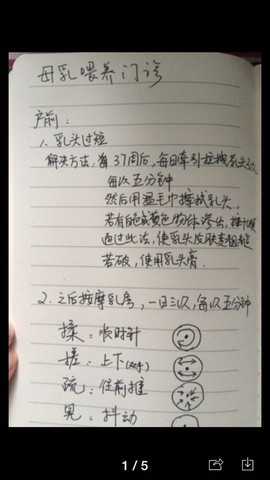 母乳喂养门诊
产前:
1、乳头过短
解决方法: 37周后,每日牵引拉拽乳头
每次五分钟
然后用湿毛巾擦拭乳头,
若有白色或黄色物体渗出,擦干净
通过此法,使乳头皮肤变粗糙
若破,使用乳头膏.
2.之后按摩乳房,一日三次,每次五分钟
揉:顺时针
搓:上下
疏:往前推
晃:抖动
1/5